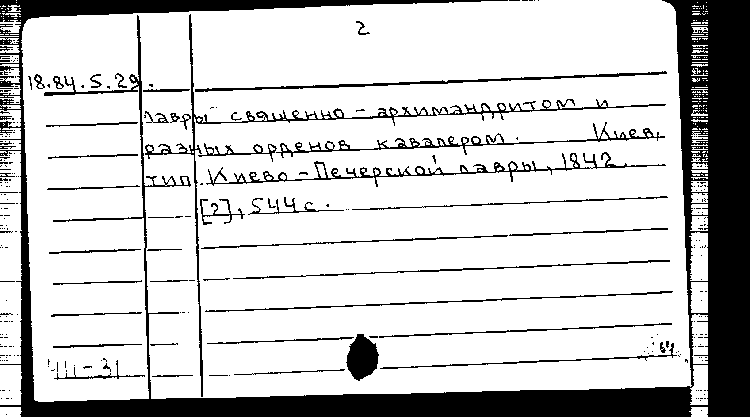 2
18.84.5.29.
лавры священно-архимандритом и
разных орденов кавалером. Киев,
тип. Киево-Печерской лавры, 1842.
[2], 544 с.